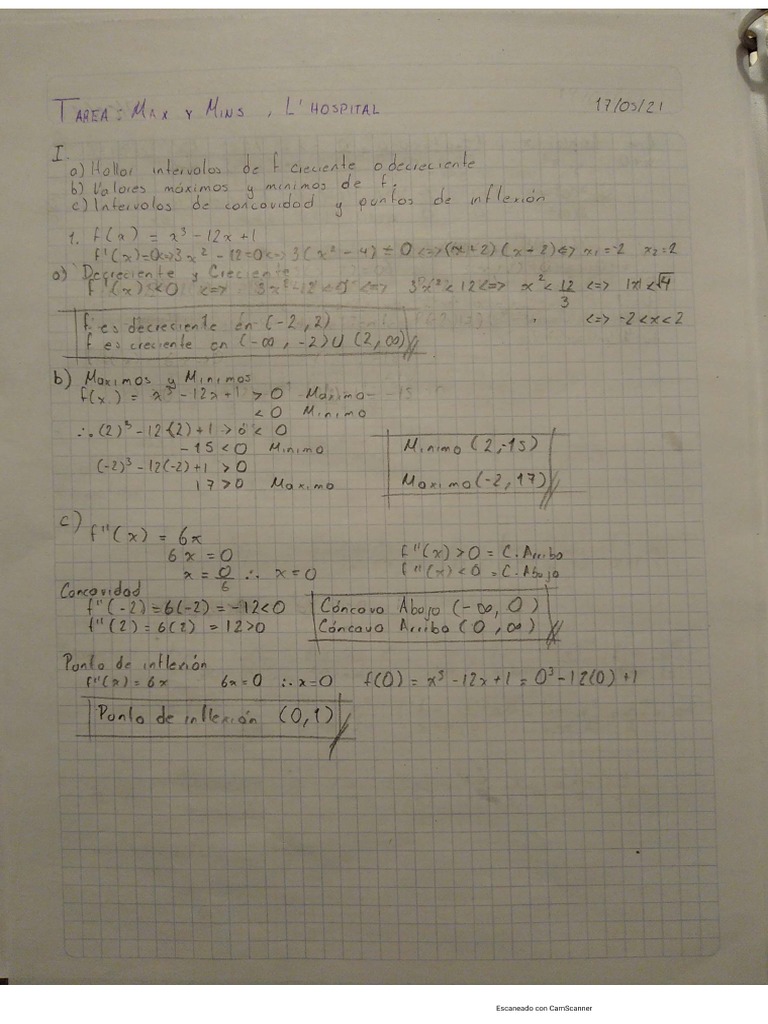 TAREA: MAX Y MINS, L'HOSPITAL 17/05/21
I.
a) Hallar intervalos de f creciente o decreciente
b) Valores máximos y mínimos de f,
c) Intervalos de concavidad y puntos de inflexión
1. f(x) = x³ - 12x + 1
f'(x)=0<=>3x² - 12=0<=>3(x² - 4) = 0 <=>(x-2)(x+2)<=> x₁=-2 x₂=2
a) Decreciente y Creciente
f'(x) < 0 <=> 3x²-12<0 <=> 3x² < 12 <=> x² < 12/3 <=> |x| < √4
<=> -2 < x < 2
f es decreciente en (-2, 2)
f es creciente en (-∞, -2) U (2, ∞)
b) Maximos y Minimos
f(x.) = x³ - 12x + 1 > 0 Maximo
< 0 Minimo
∴ (2)³ - 12(2) + 1 > 0 < 0
- 15 < 0 Minimo
(-2)³ - 12(-2) + 1 > 0
17 > 0 Maximo
Minimo (2,-15)
Maximo (-2, 17)
c) f''(x) = 6x
6x = 0
x = 0/6 ∴ x = 0
f''(x) > 0 = C. Arriba
f''(x) < 0 = C. Abajo
Concavidad
f''(-2) = 6(-2) = -12 < 0
f''(2) = 6(2) = 12 > 0
Cóncavo Abajo (-∞, 0)
Cóncavo Arriba (0, ∞)
Punto de inflexión
f''(x) = 6x 6x = 0 ∴ x = 0 f(0) = x³ - 12x + 1 = 0³ - 12(0) + 1
Punto de inflexión (0,1)
Escaneado con CamScanner